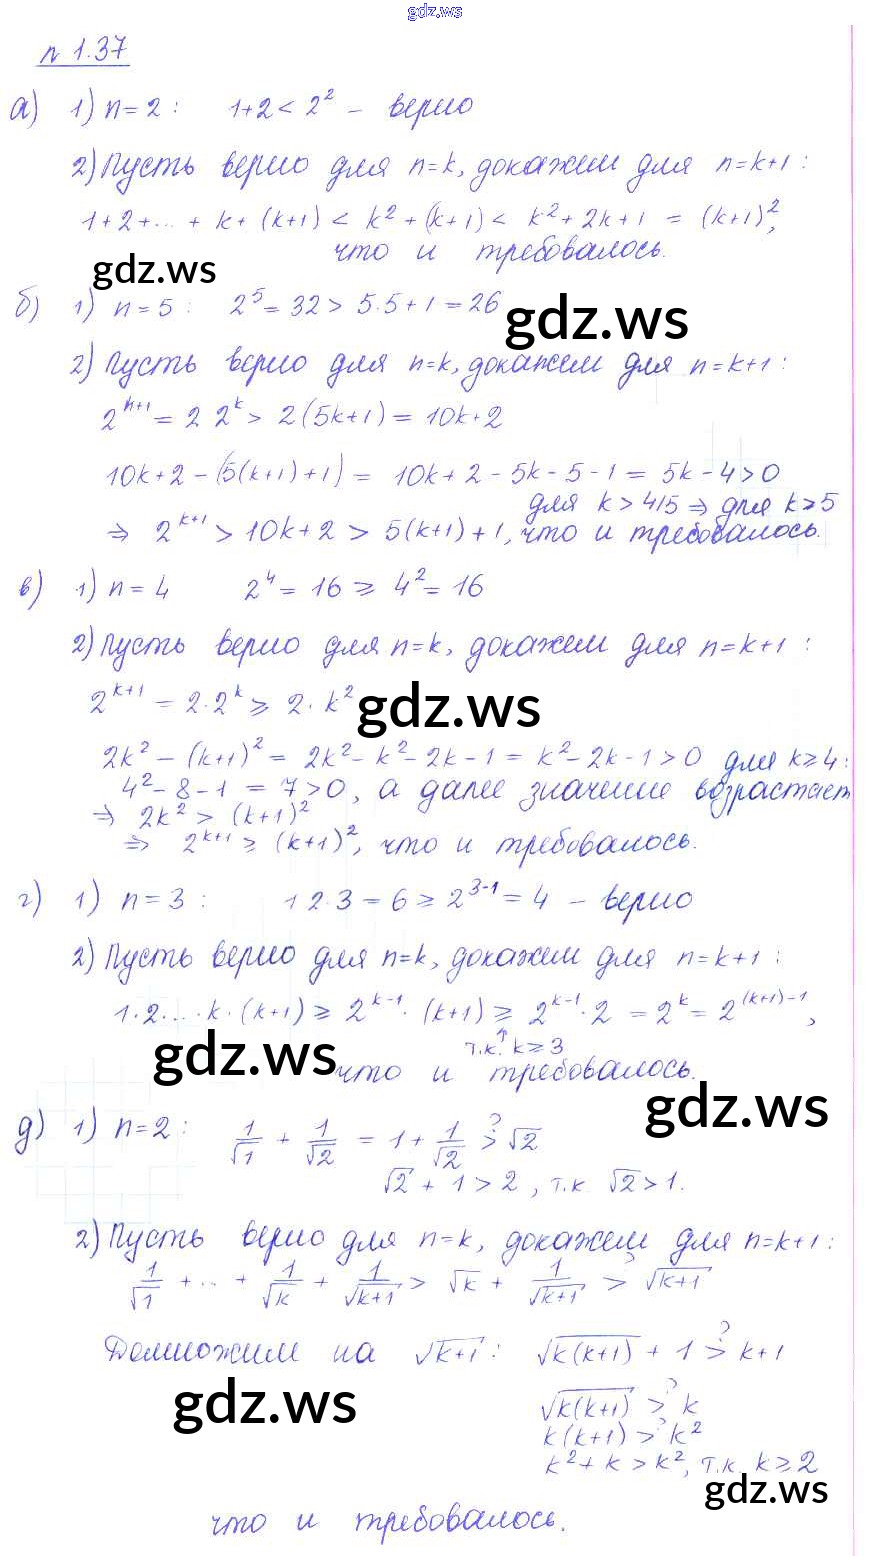 gdz.ws
n 1.37
а) 1) n=2 : 1+2 < 2² – верно
2) Пусть верно для n=k, докажем для n=k+1 :
1+2+...+ k+(k+1) < k²+(k+1) < k²+2k+1 = (k+1)²,
что и требовалось.
gdz.ws
б) 1) n=5 : 2⁵=32 > 5.5+1=26
gdz.ws
2) Пусть верно для n=k, докажем для n=k+1 :
2ⁿ⁺¹ = 2 2ᵏ > 2(5k+1) = 10k+2
10k+2 – (5(k+1)+1) = 10k+2-5k-5-1 = 5k-4>0
для k > 4/5 ⇒ для k ≥ 5
⇒ 2ᵏ⁺¹ > 10k+2 > 5(k+1)+1, что и требовалось.
в) 1) n=4 2⁴=16 ≥ 4²=16
2) Пусть верно для n=k, докажем для n=k+1 :
2ᵏ⁺¹ = 2.2ᵏ ≥ 2·k²
gdz.ws
2k² – (k+1)² = 2k²-k²-2k-1 = k²-2k-1 > 0 для k≥4 :
4²-8-1 = 7>0, а далее значение возрастает
⇒ 2k² > (k+1)²
⇒ 2ᵏ⁺¹ ≥ (k+1)², что и требовалось.
г) 1) n=3 : 1 2·3=6 ≥ 2³⁻¹=4 – верно
2) Пусть верно для n=k, докажем для n=k+1 :
1·2...·k·(k+1) ≥ 2ᵏ⁻¹·(k+1) ≥ 2ᵏ⁻¹·2 = 2ᵏ = 2⁽ᵏ⁺¹⁾⁻¹,
↑
т.к. k≥3
gdz.ws
что и требовалось.
gdz.ws
д) 1) n=2 : 1/√1 + 1/√2 = 1 + 1/√2 >? √2
√2 + 1 > 2, т.к √2>1.
2) Пусть верно для n=k, докажем для n=k+1 :
1/√1 +...+ 1/√k + 1/√(k+1) > √k + 1/√(k+1) >? √(k+1)
Домножим на √(k+1) : √(k(k+1)) + 1 >? k+1
gdz.ws
√(k(k+1)) >? k
k(k+1) >? k²
k²+k > k², т.к. k≥2
gdz.ws
что и требовалось.